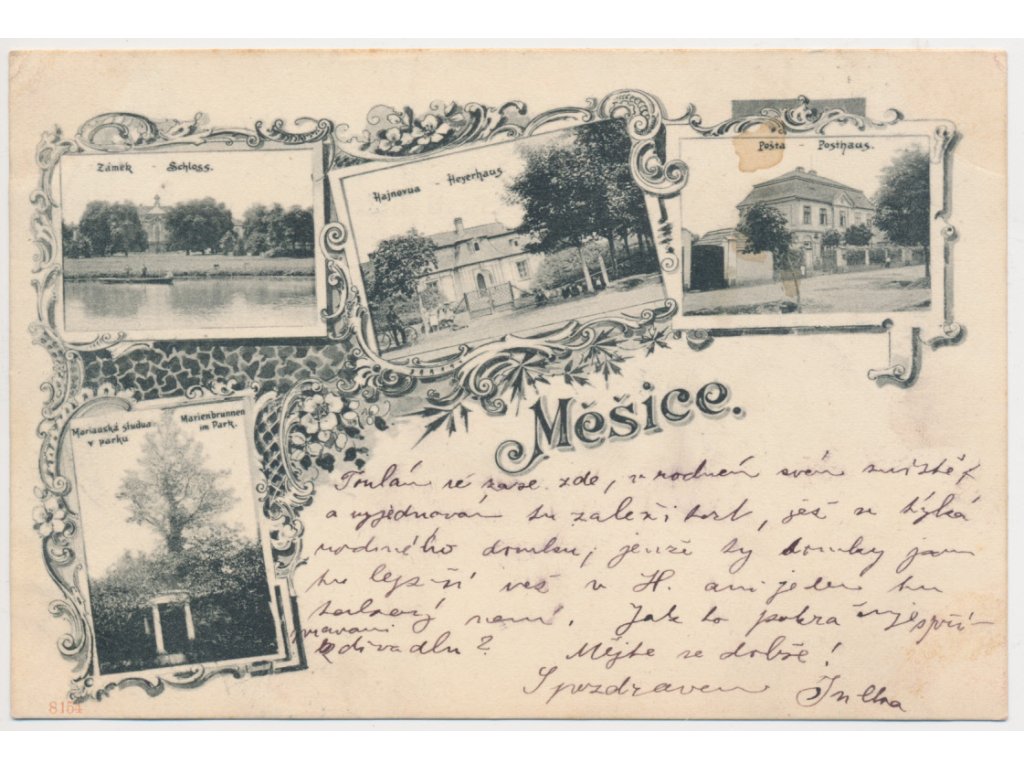 Zámek - Schloss.
Hajnovua - Heyerhaus
Pošta - Posthaus.
Mariauská studua
v parku
Marienbrunnen
im Park.
Měšice.
Toulám se zase zde, v rodném svém
a vyjednávám tu záležitost, jež se týká
rodinného domku, jenže ty domky jsou
tu lepší než v H. ani jeden tu
takový není. Jak to pokračuje s
divadlu? Mějte se dobře!
S pozdravem
8154